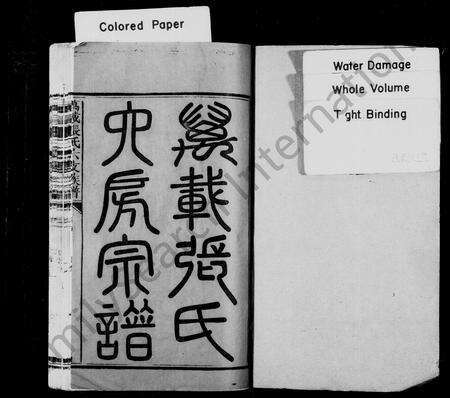 Colored Paper
Water Damage
Whole Volume
Tight Binding
萬載張氏
六房宗譜
萬載張氏六支族譜
FamilySearch International